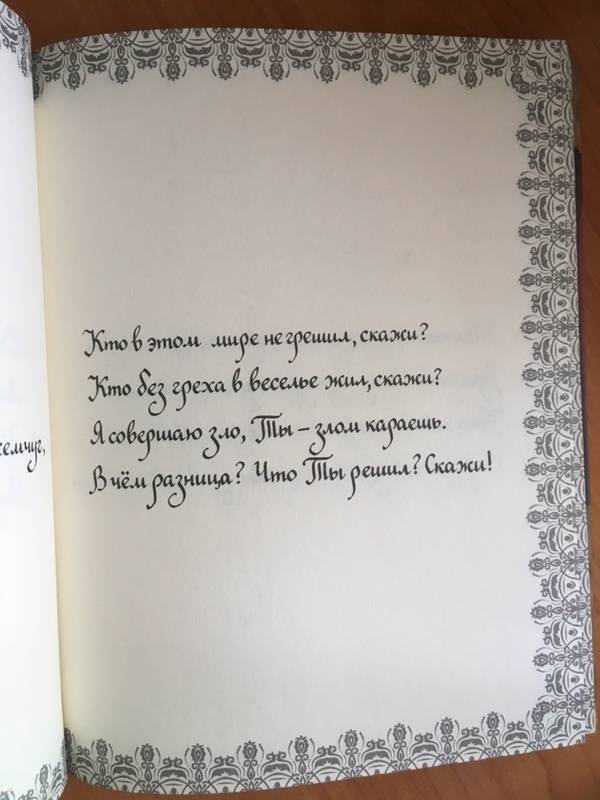 Кто в этом мире не грешил, скажи?
Кто без греха в веселье жил, скажи?
Я совершаю зло, Ты – злом караешь.
В чём разница? Что Ты решил? Скажи!